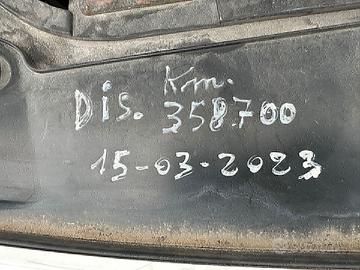 Km.
Dis. 358700
15-03-2023